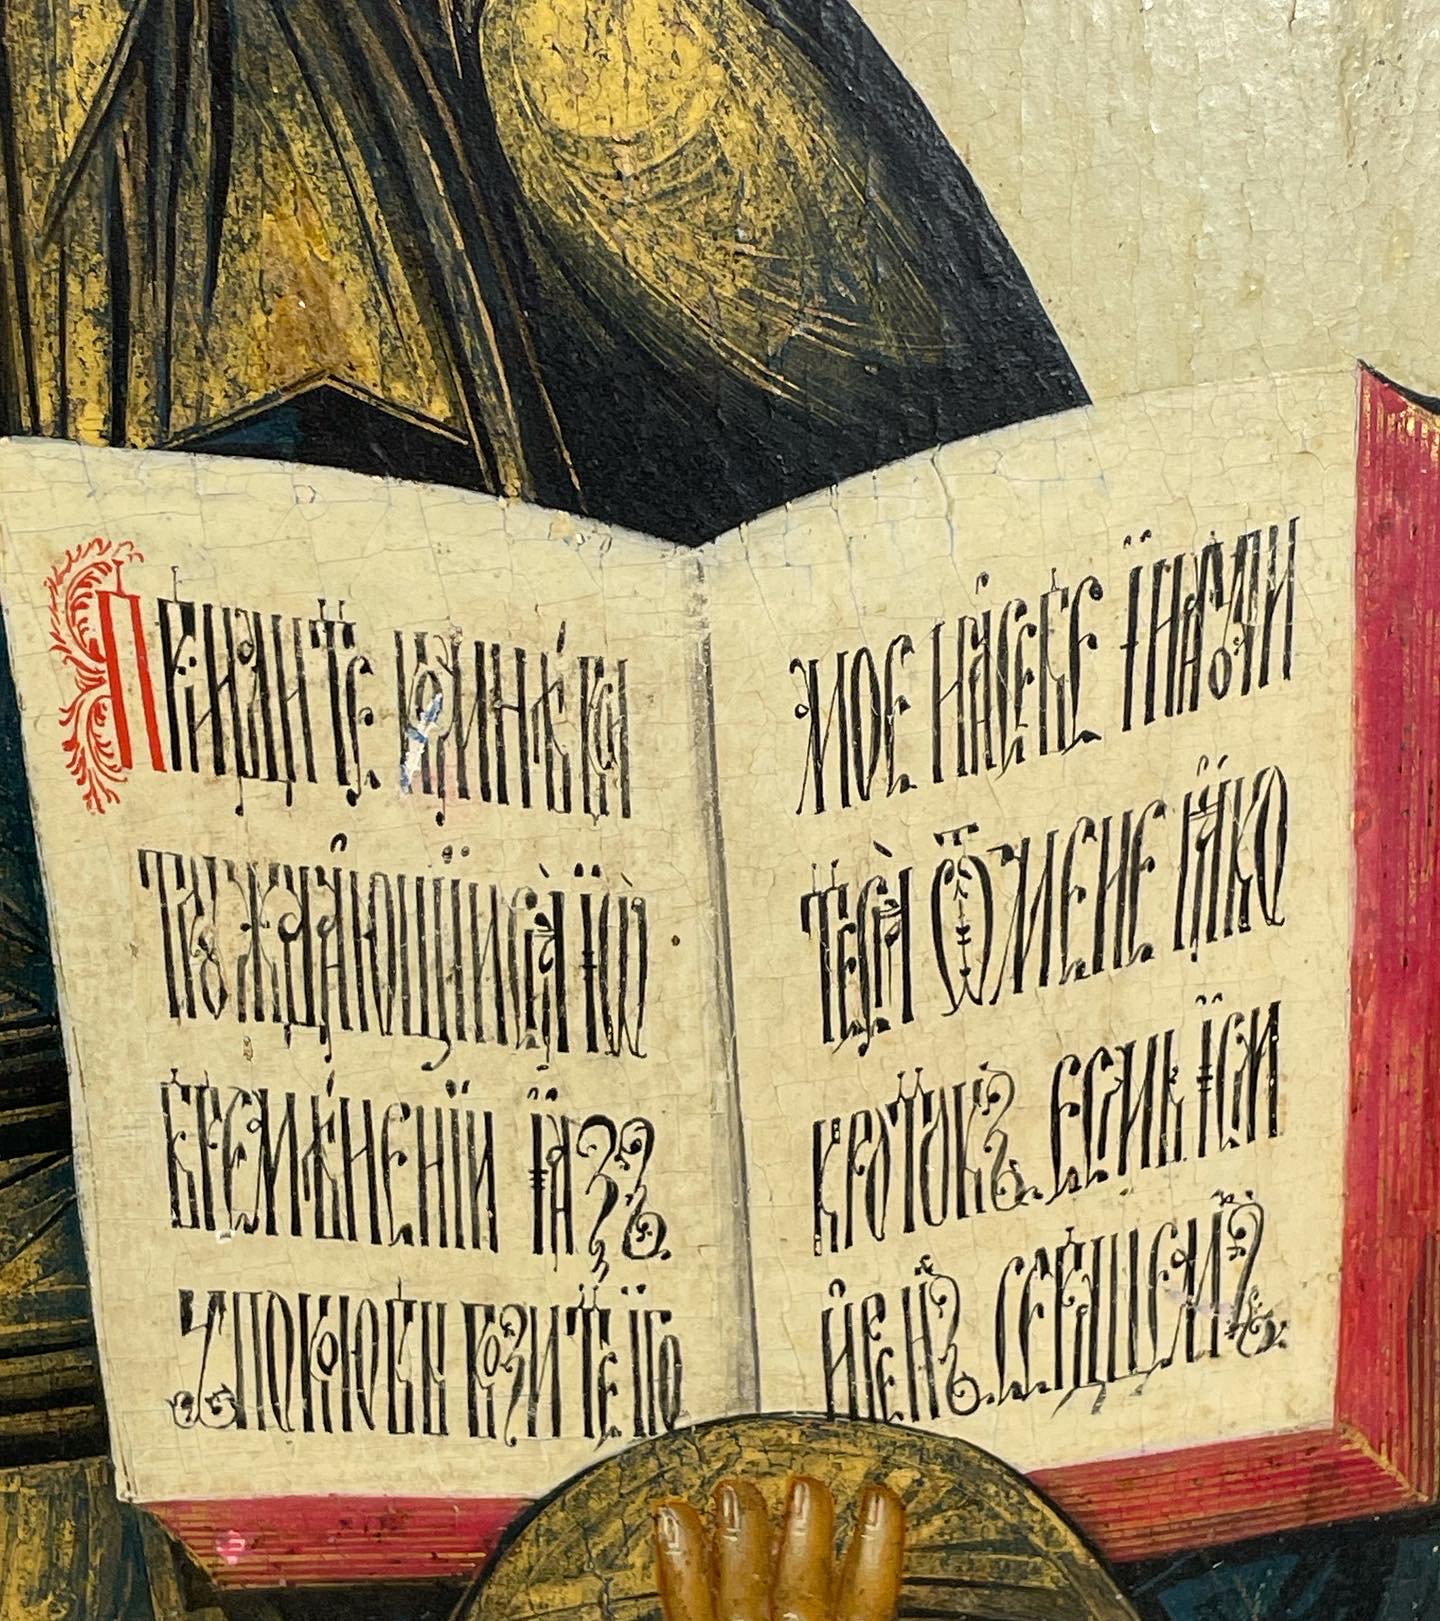 Прїидите ко мнѣ вси
трꙋждающїися и ѡ
бремѣненїи и азъ
упокою вы возмите иго
мое на себе и наꙋчи
теся ѿ мене яко
кротокъ есмь и сми
ренъ сердцемъ